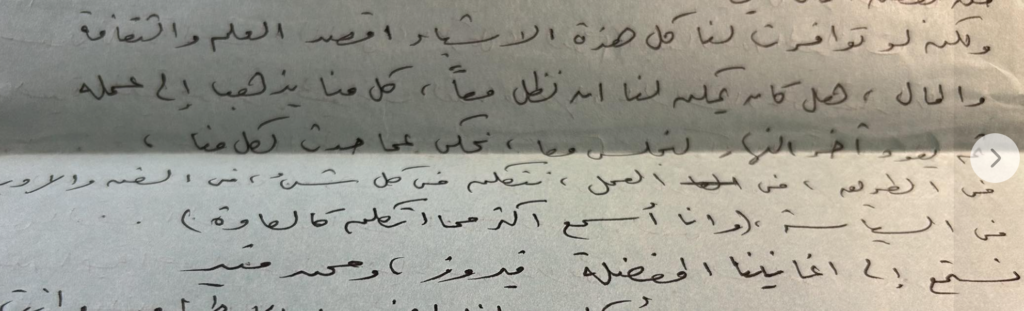 ولكن لو توافرت لنا كل هذة الاشياء اقصد العلم والثقافة
والمال ، هل كان يمكن لنا ان نظل معاً ، كل منا يذهب إلى عمله
يعود آخر النهار لنجلس معا ، نحكى عما حدث لكل منا ،
فى الطريق ، فى العمل ، نتكلم فى كل شئ ، فى الفن والادب
فى السياسة ، (وانا أسمع اكثر مما اتكلم كالعادة)
نستمع إلى اغانينا المفضلة فيروز ، ومحمد منير